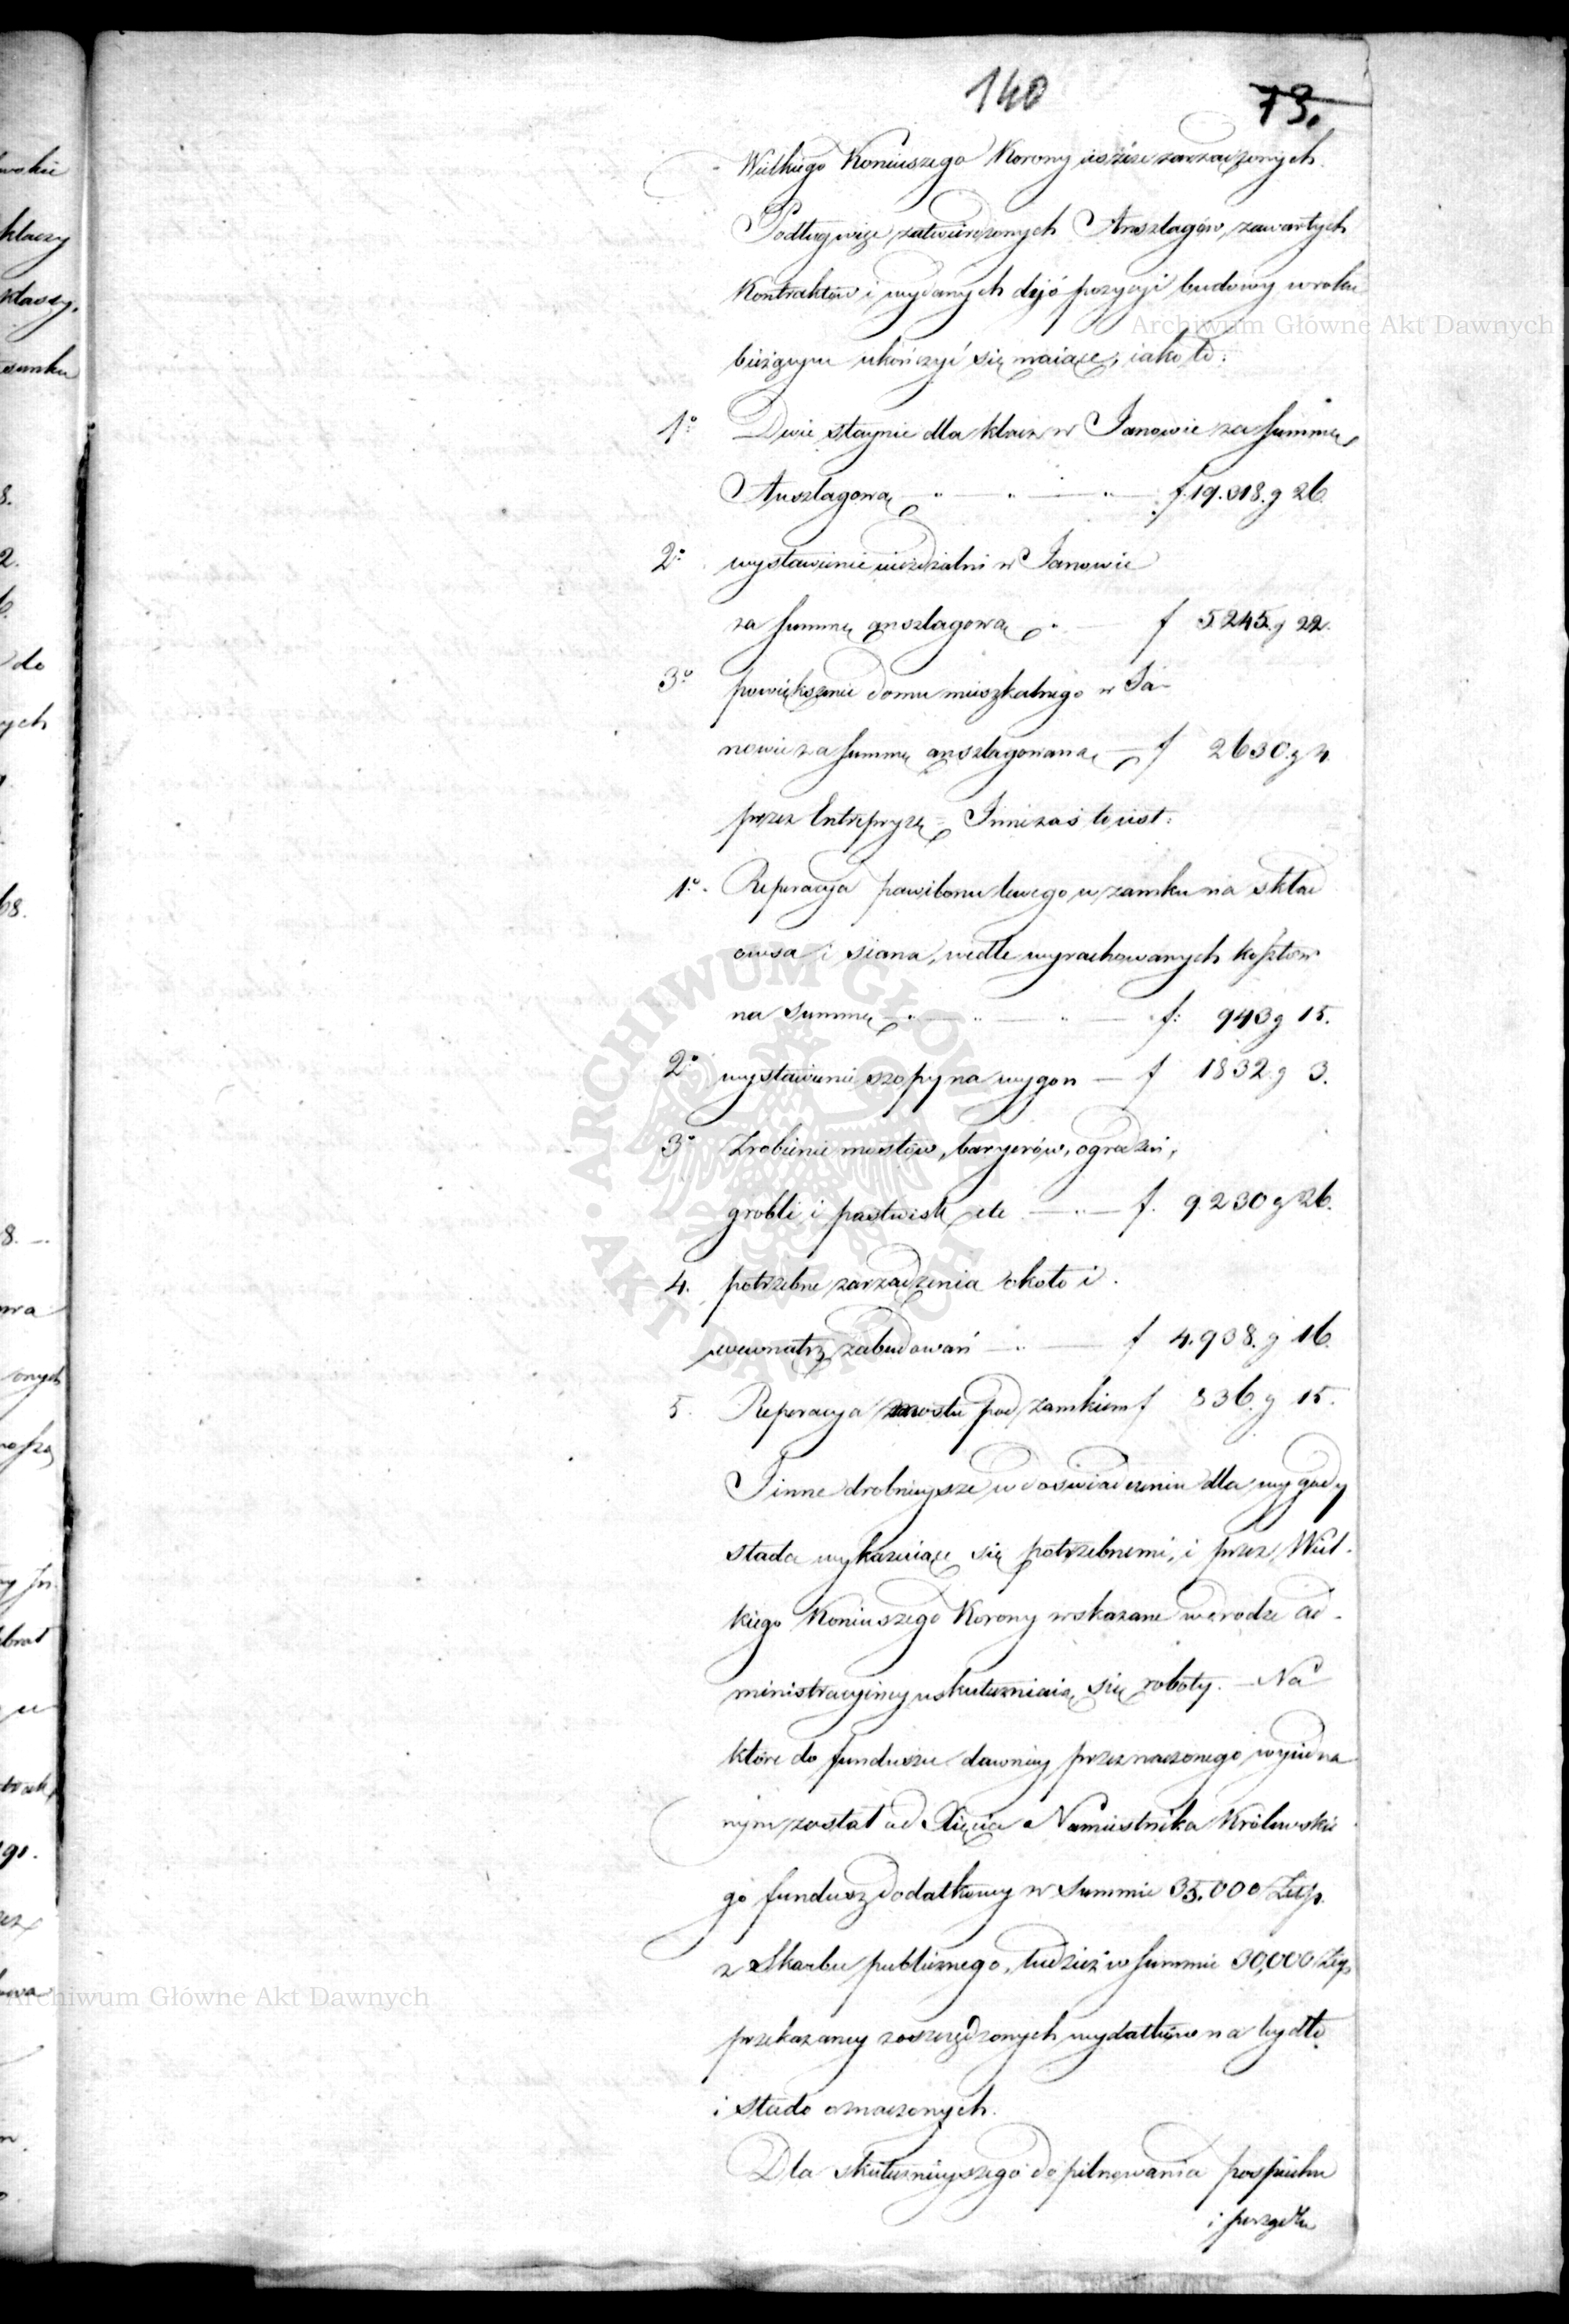 140 73.
Wielkiego Koniuszego Korony iuż są zarządzonych.
Podług więc zatwierdzonych Anszlagów, zawartych
Kontraktów i wydanych dyspozycji budowy w roku
bieżącym ukończyć się maiące, iako to:
1o Dwie staynie dla klacz w Janowie za summę
Anszlagową f. 19.318. g 26.
2o wystawienie uieżdżalni w Janowie
za summę anszlagową f 5245. g 22.
3o powiększenie domu mieszkalnego w Ja-
nowie za summę anszlagowaną f 2630. g 4.
przez Entrepryzę = Inne zaś to iest:
1o. Reperacya pawilonu lewego w zamku na skład
owsa i siana, wedle wyrachowanych kosztów
na summę f: 943 g 15.
2o wystawienie szopy na wygon — f 1832. g 3.
3o Zrobienie mostów, baryerów, ogrodzeń,
grobli i pastwisk etc f. 9.230 g 26.
4. potrzebne zarządzenia około i
wewnątrz zabudowań f 4.938. g 16.
5. Reperacya mostu pod zamkiem f 836. g 15.
I inne drobnieysze w doświadczeniu dla wygody
stada wykazuiące się potrzebnemi, i przez Wiel-
kiego Koniuszego Korony wskazane w drodze ad-
ministracyiney uskuteczniaią się roboty. — Na
które do funduszu dawniey przeznaczonego wyiedna
nym został od Xięcia Namiestnika Królewskie
go fundusz dodatkowy w Summie 35.000 Złtp.
z Skarbu publicznego, tudzież w summie 30,000 Złtp
przekazaney zoszczędzonych wydatków na bydło
i stado oznaczonych.
Dla skutecznieyszego dopilnowania pospiechu
i porządku
Archiwum Główne Akt Dawnych
ARCHIWUM GŁÓWNE AKT DAWNYCH
Archiwum Główne Akt Dawnych